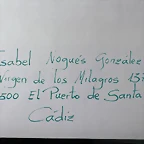 Isabel Nogués González
Virgen de los Milagros 13
500 El Puerto de Santa
Cádiz